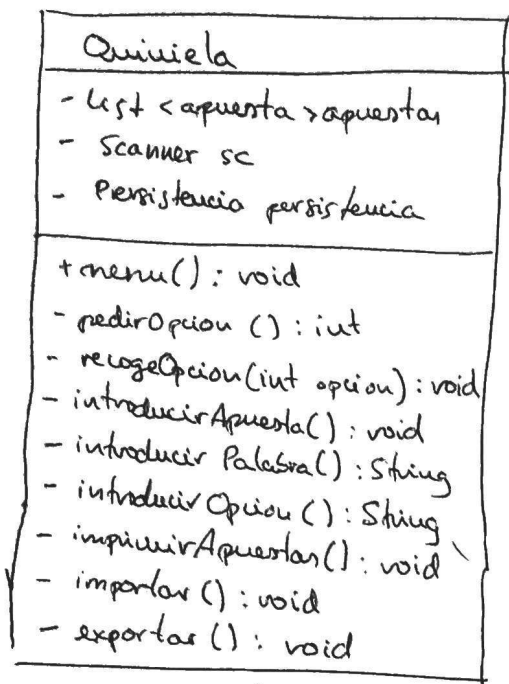 Quiniela
- List <apuesta> apuestas
- Scanner sc
- Persistencia persistencia
+ menu() : void
- pedirOpcion () : int
- recogeOpcion(int opcion) : void
- introducirApuesta() : void
- introducir Palabra() : String
- introducir Opcion () : String
- imprimirApuestas() : void
- importar () : void
- exportar () : void